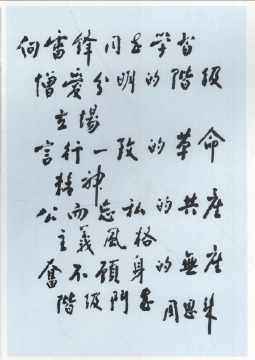 向雷锋同志学习
憎爱分明的階級
立場
言行一致的革命
精神
公而忘私的共產
主義風格
奮不顧身的無產
階級鬥志 周恩来